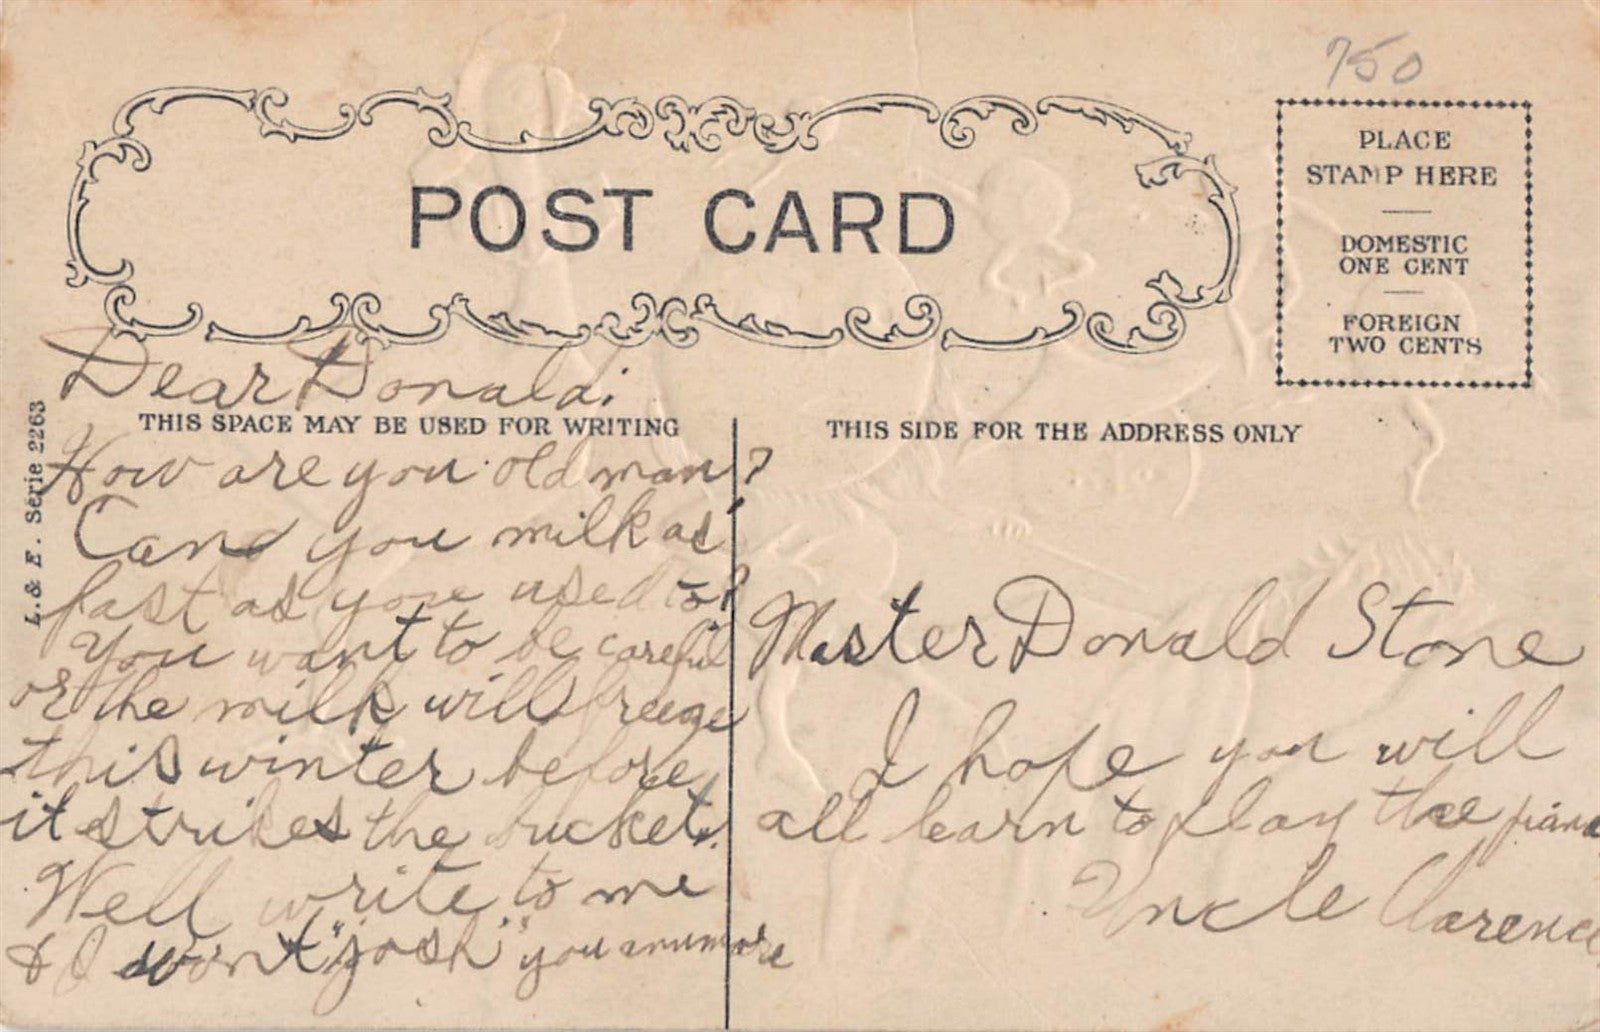 750
PLACE
STAMP HERE
DOMESTIC
ONE CENT
FOREIGN
TWO CENTS
POST CARD
Dear Donald:
THIS SPACE MAY BE USED FOR WRITING
How are you old man?
Can you milk as
fast as you used to?
You want to be careful
or the milk will freeze
this winter before
it strikes the bucket.
Well write to me
& I won't "josh" you anymore
L. & E. Serie 2263
THIS SIDE FOR THE ADDRESS ONLY
Master Donald Stone
I hope you will
all learn to play the piano
Uncle Clarence